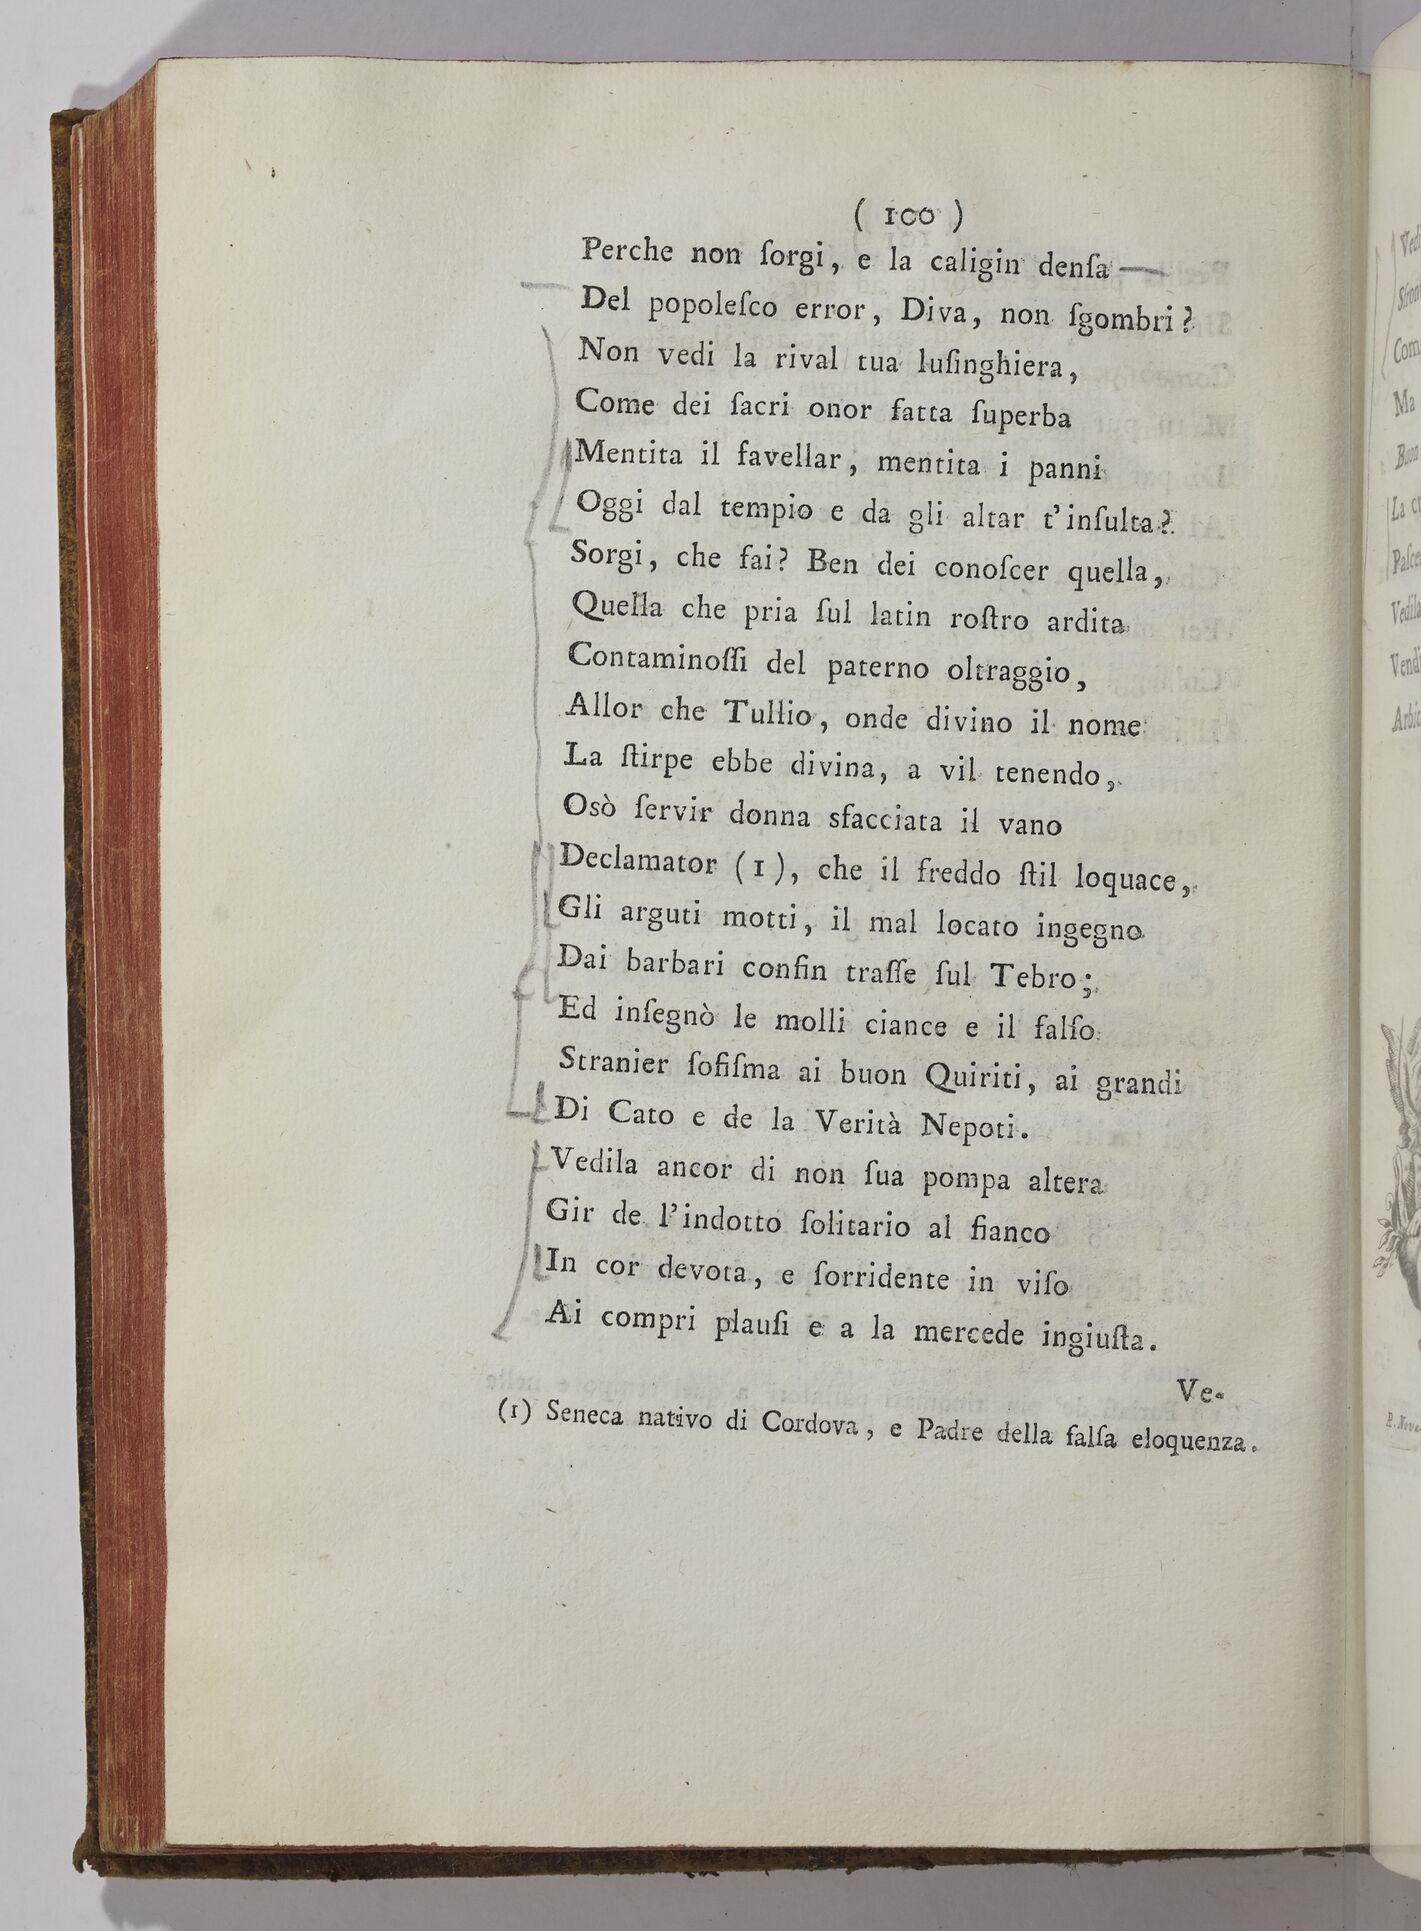 ( 100 )
Perche non ſorgi, e la caligin denſa
Del popoleſco error, Diva, non ſgombri?
Non vedi la rival tua luſinghiera,
Come dei ſacri onor fatta ſuperba
Mentita il favellar, mentita i panni
Oggi dal tempio e da gli altar t'inſulta?
Sorgi, che fai? Ben dei conoſcer quella,
Quella che pria ſul latin roſtro ardita
Contaminoſſi del paterno oltraggio,
Allor che Tullio, onde divino il nome
La ſtirpe ebbe divina, a vil tenendo,
Osò ſervir donna sfacciata il vano
Declamator (1), che il freddo ſtil loquace,
Gli arguti motti, il mal locato ingegno
Dai barbari confin traſſe ſul Tebro;
Ed inſegnò le molli ciance e il falſo
Stranier ſofiſma ai buon Quiriti, ai grandi
Di Cato e de la Verità Nepoti.
Vedila ancor di non ſua pompa altera
Gir de l'indotto ſolitario al fianco
In cor devota, e ſorridente in viſo
Ai compri plauſi e a la mercede ingiuſta.
Ve-
(1) Seneca nativo di Cordova, e Padre della falſa eloquenza.
Ma
La
Vedila